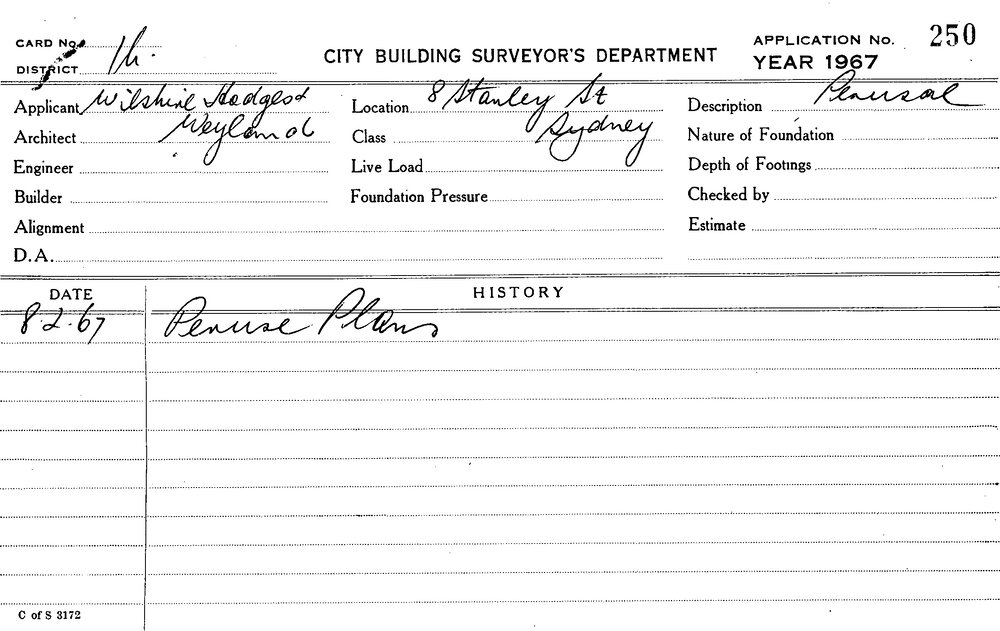 CARD No.
DISTRICT
CITY BUILDING SURVEYOR'S DEPARTMENT
APPLICATION No. 250
YEAR 1967
Applicant Wilshire Hodges &
Weyland
Location 8 Stanley St
Sydney
Description Perusal
Architect
Class
Nature of Foundation
Engineer
Live Load
Depth of Footings
Builder
Foundation Pressure
Checked by
Alignment
Estimate
D.A.
DATE HISTORY
8.2.67 Peruse Plans
C of S 3172